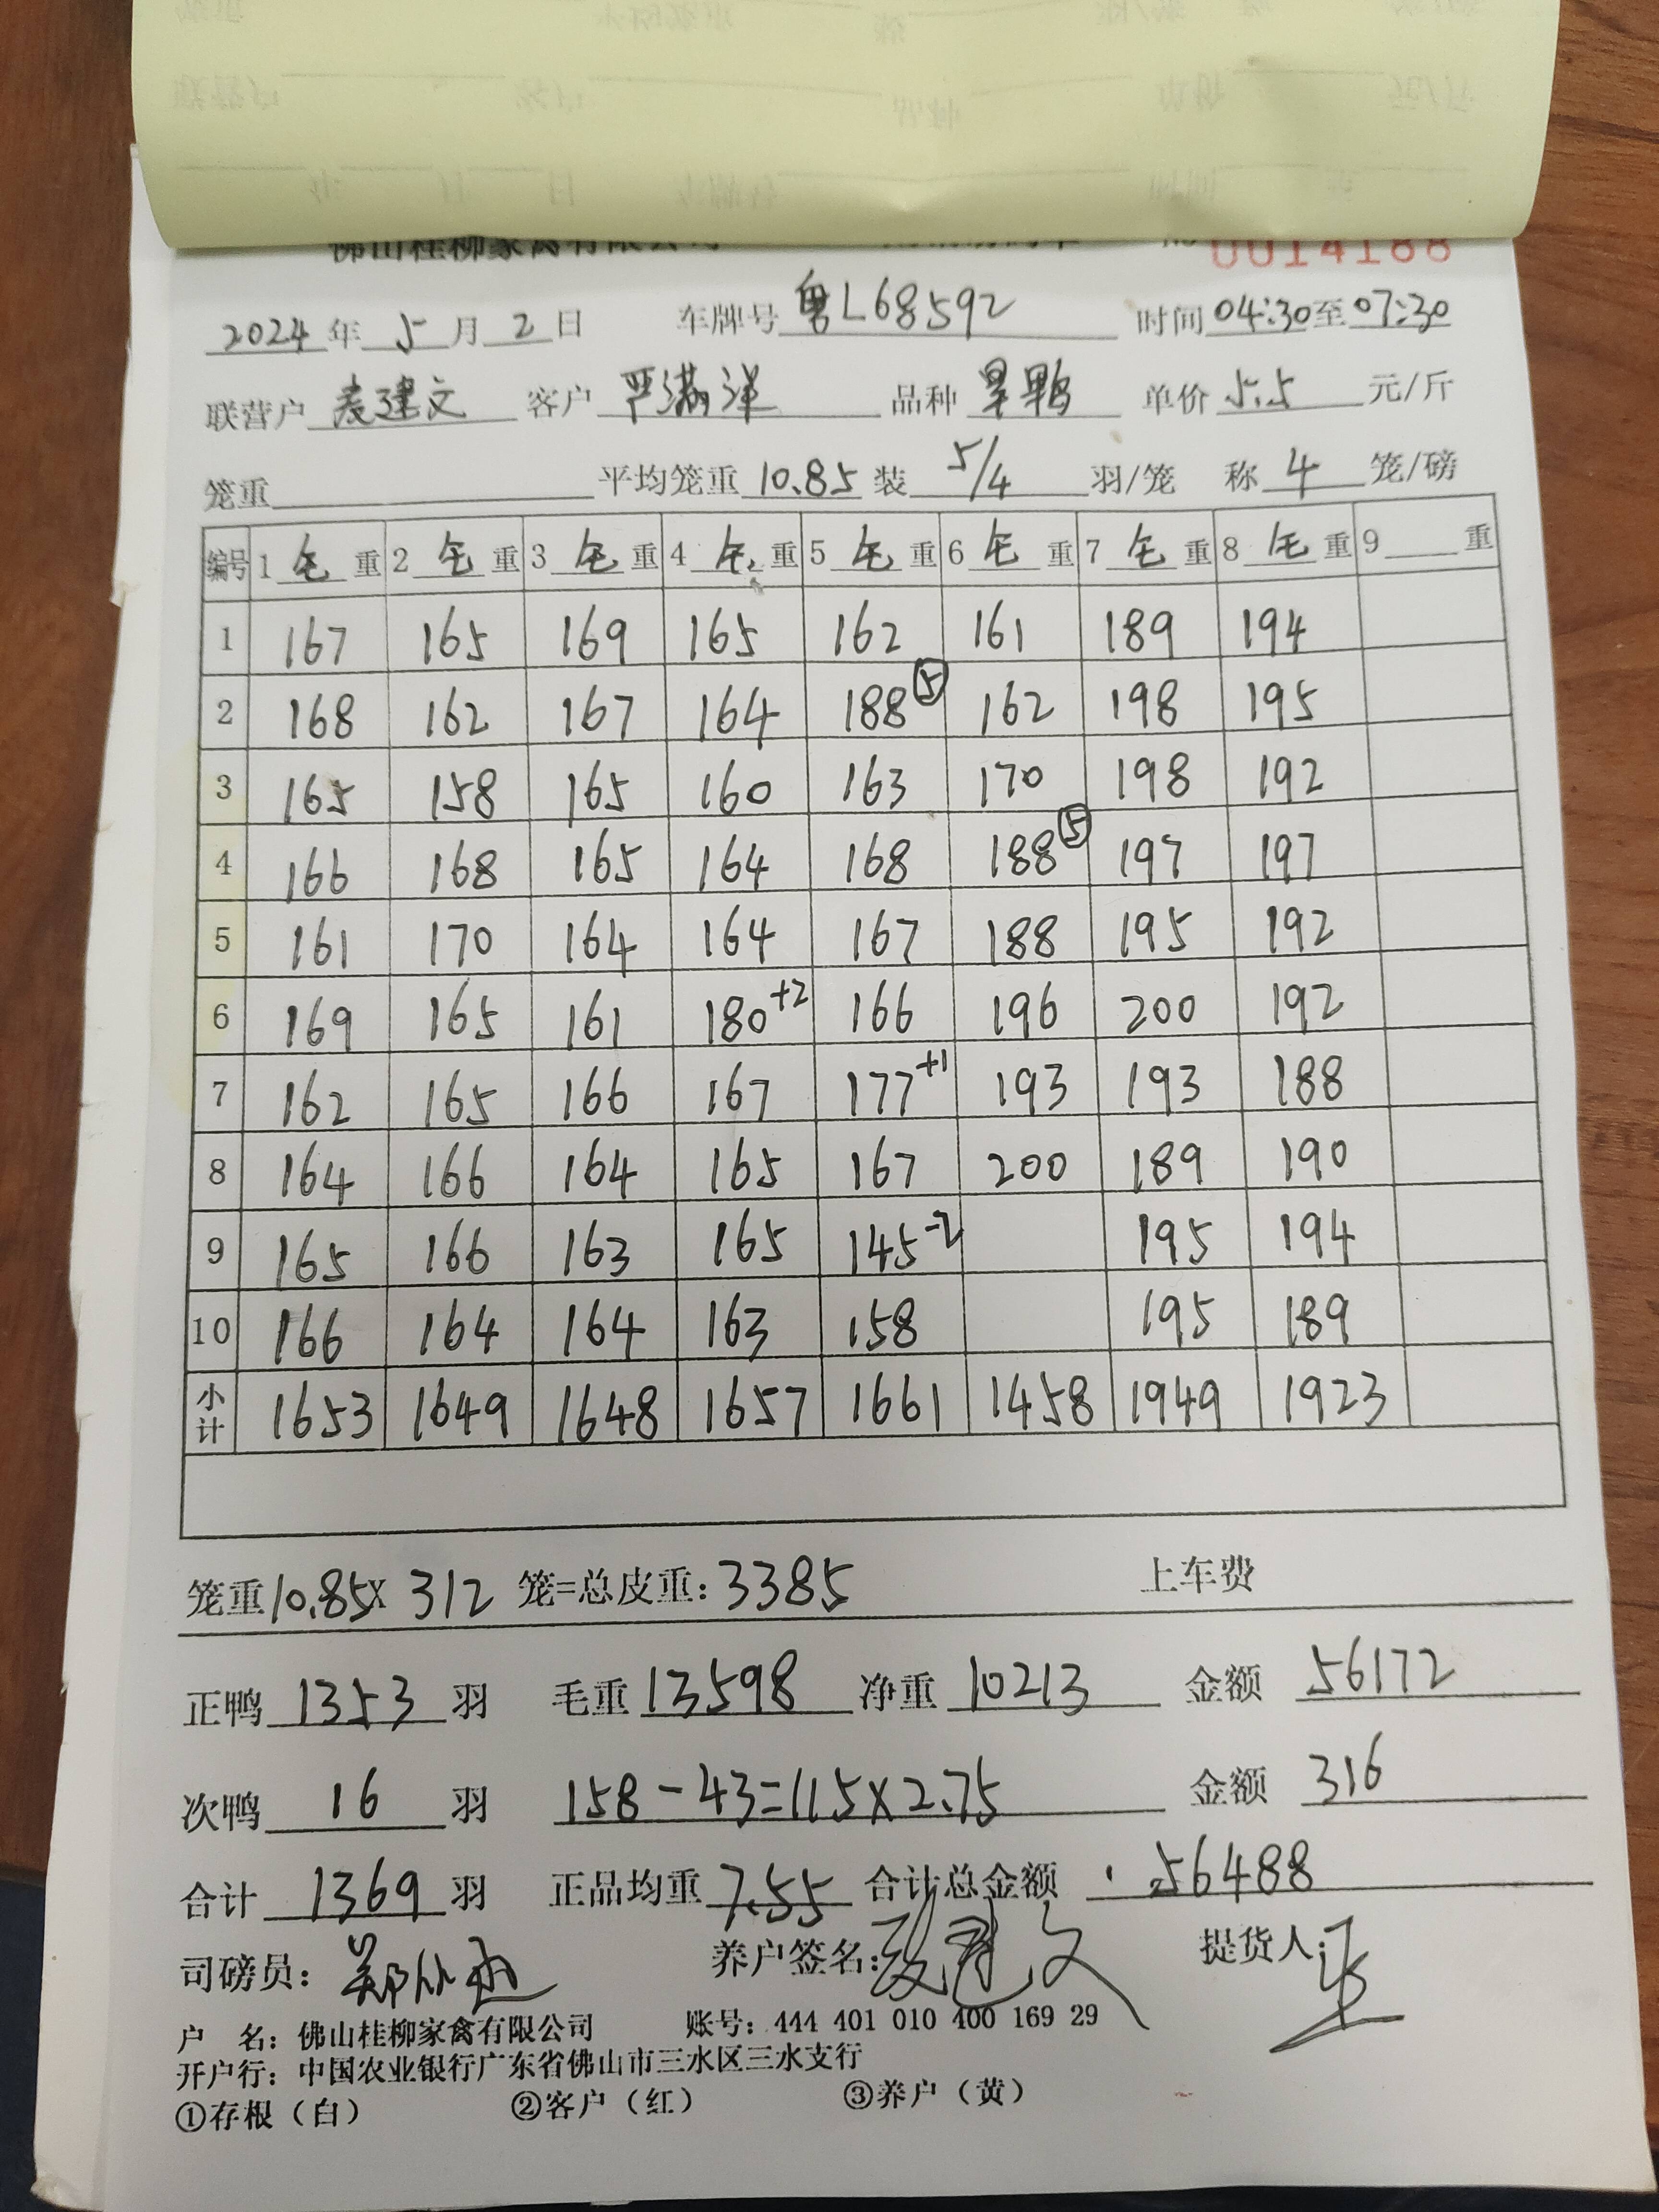 佛山桂柳家禽有限公司 0014188
2024年5月2日 车牌号 粤L68592 时间 04:30至07:30
联营户 麦建文 客户 严满洋 品种 旱鸭 单价 5.5 元/斤
笼重 平均笼重 10.85 装 5/4 羽/笼 称 4 笼/磅
编号 1 毛 重 2 毛 重 3 毛 重 4 毛 重 5 毛 重 6 毛 重 7 毛 重 8 毛 重 9 重
1 167 165 169 165 162 161 189 194
2 168 162 167 164 188⑤ 162 198 195
3 165 158 165 160 163 170 198 192
4 166 168 165 164 168 188⑤ 197 197
5 161 170 164 164 167 188 195 192
6 169 165 161 180+2 166 196 200 192
7 162 165 166 167 177+1 193 193 188
8 164 166 164 165 167 200 189 190
9 165 166 163 165 145-2 195 194
10 166 164 164 163 158 195 189
小计 1653 1649 1648 1657 1661 1458 1949 1923
笼重10.85X 312 笼=总皮重:3385 上车费
正鸭 1353 羽 毛重 13598 净重 10213 金额 56172
次鸭 16 羽 158-43=115X2.75 金额 316
合计 1369 羽 正品均重 7.55 合计总金额 56488
司磅员: 养户签名: 提货人:
户 名: 佛山桂柳家禽有限公司 账号: 444 401 010 400 169 29
开户行: 中国农业银行广东省佛山市三水区三水支行
①存根（白） ②客户（红） ③养户（黄）